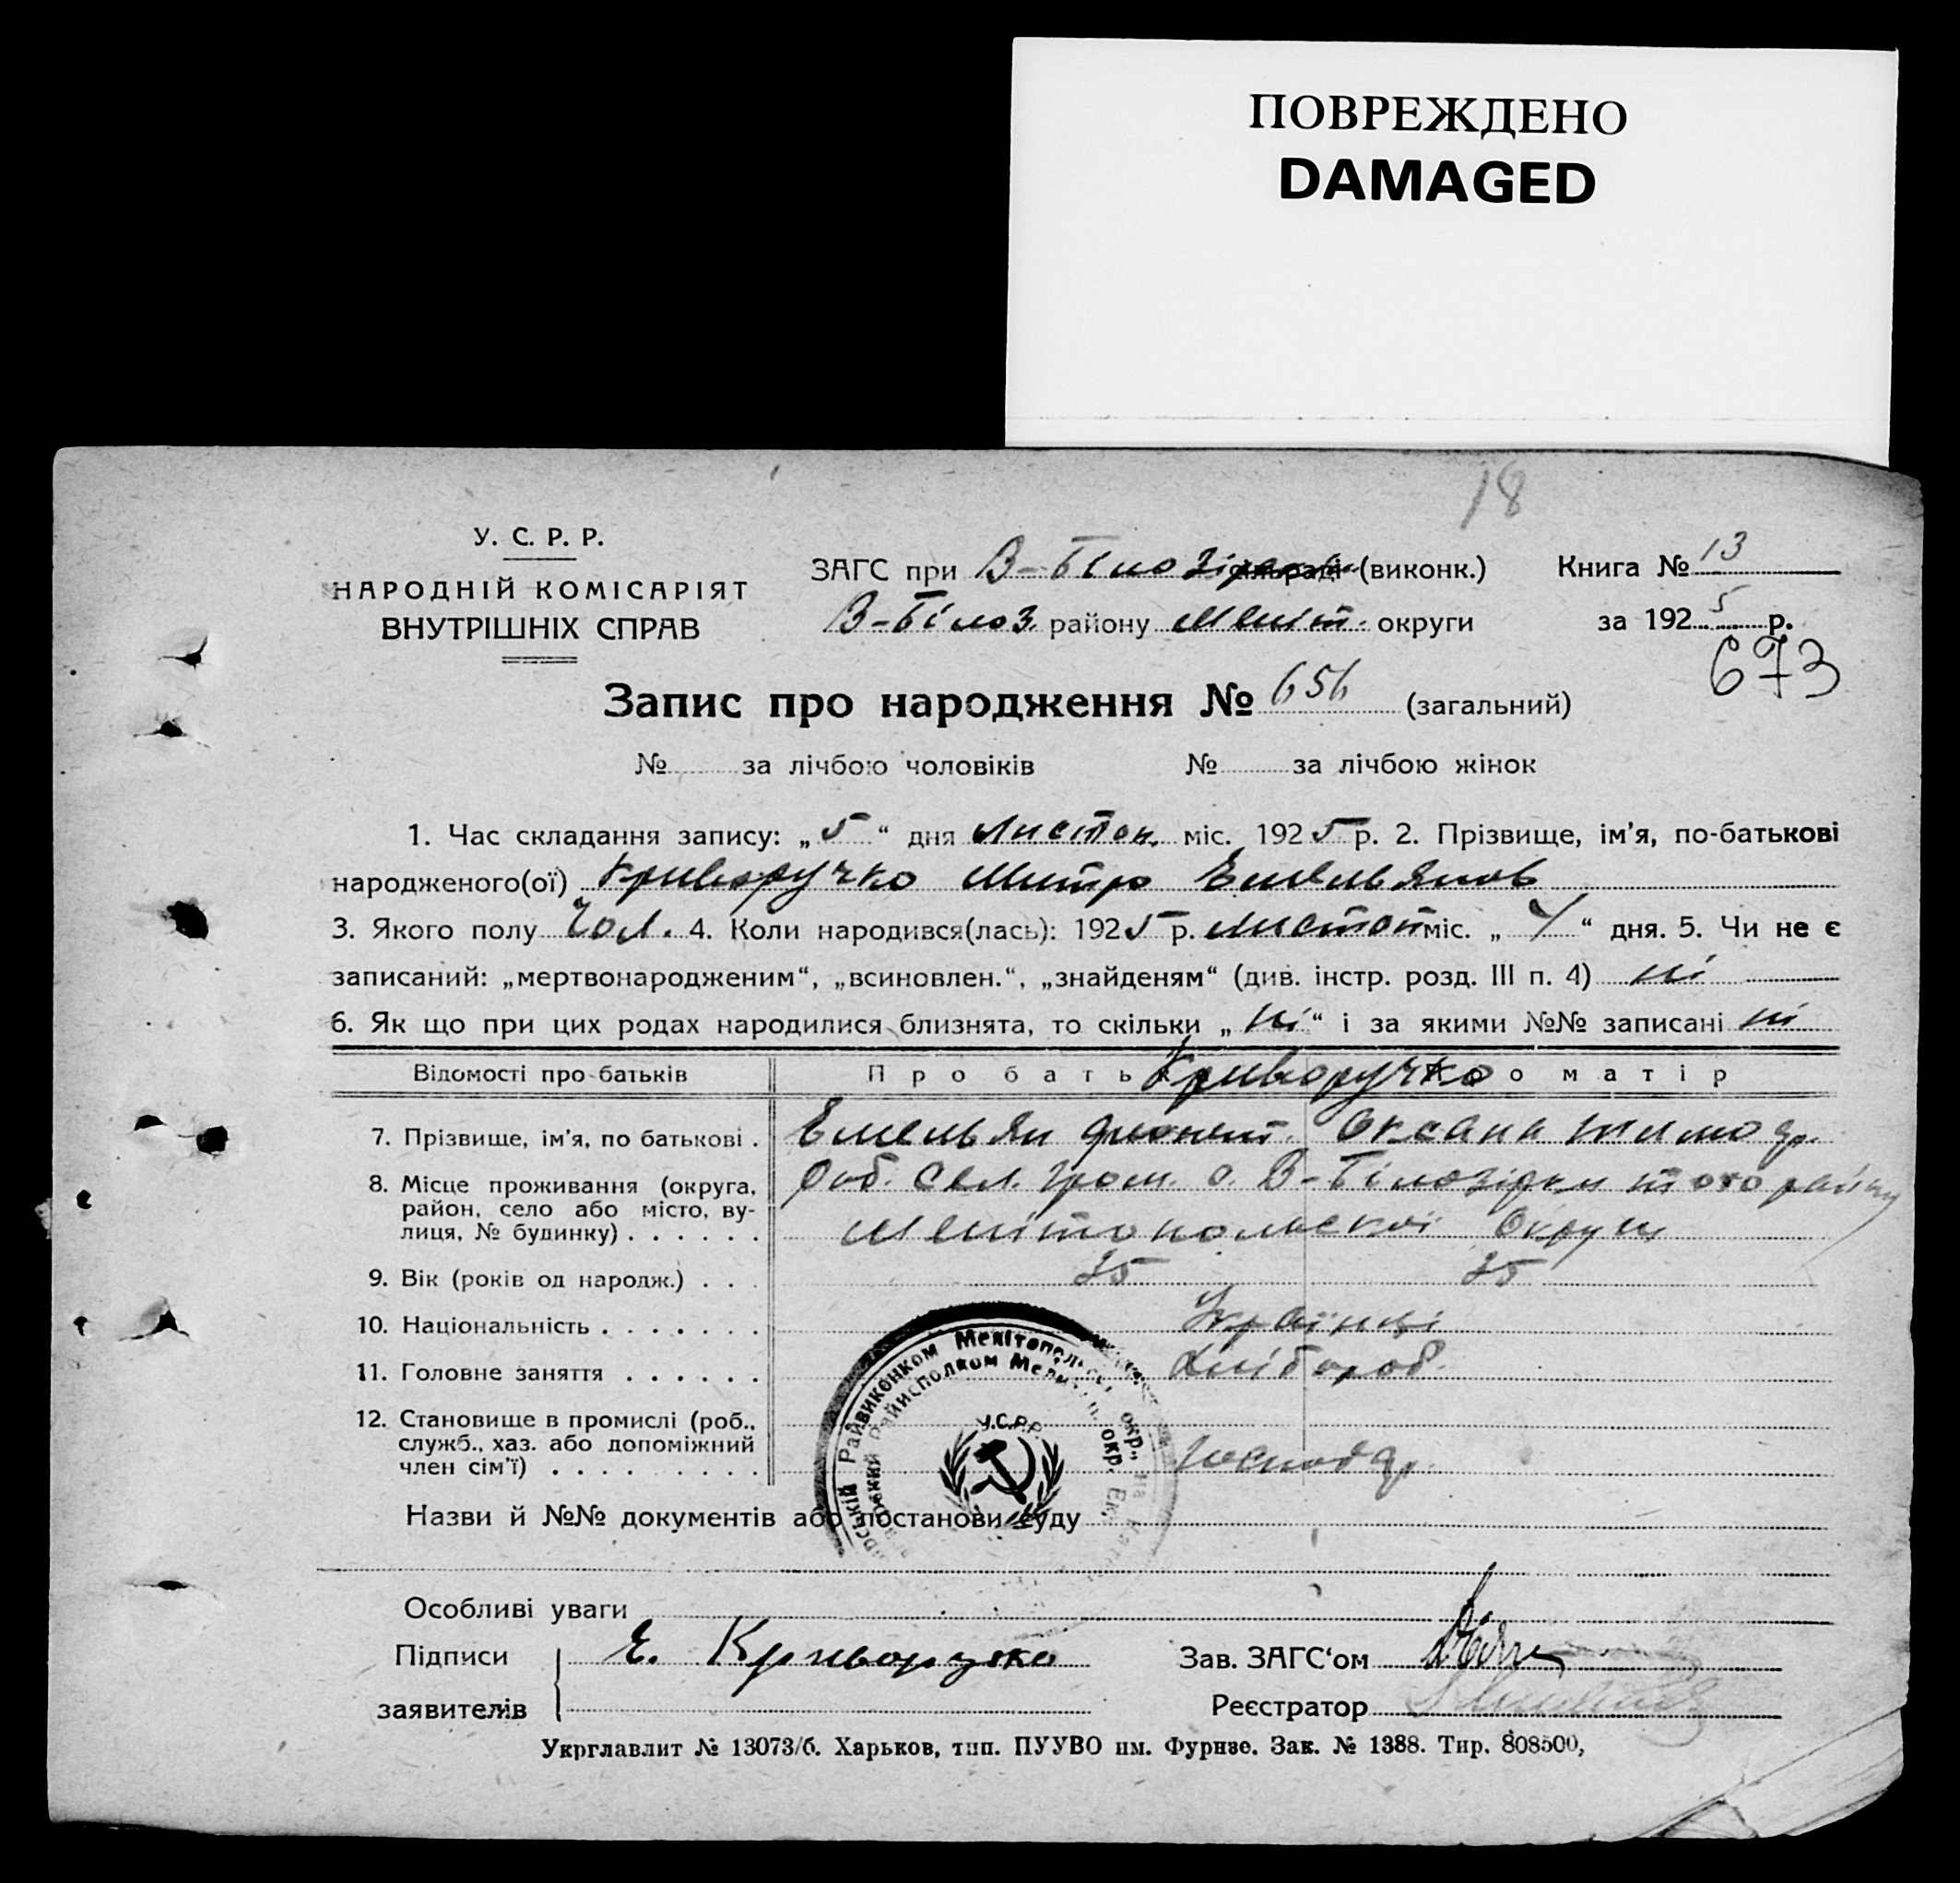 ПОВРЕЖДЕНО
DAMAGED
18
У. С. Р. Р.
НАРОДНІЙ КОМІСАРІЯТ
ВНУТРІШНІХ СПРАВ
ЗАГС при В-Білозірськ (виконк.)
В-Білоз. району Меліт. округи
Книга № 13
за 1925 р.
673
Запис про народження № 656 (загальний)
№ за лічбою чоловіків № за лічбою жінок
1. Час складання запису: „5“ дня Листоп. міс. 1925 р. 2. Прізвище, ім'я, по-батькові
народженого(ої) Криворучко Митро Емельянов
3. Якого полу Чол. 4. Коли народився(лась): 1925 р. листоп міс. „4“ дня. 5. Чи не є
записаний: „мертвонародженим“, „всиновлен.“, „знайденям“ (див. інстр. розд. III п. 4) ні
6. Як що при цих родах народилися близнята, то скільки „ні“ і за якими №№ записані ні
Відомості про батьків Про батька Про матір
Криворучко
7. Прізвище, ім'я, по батькові . Емельян Оксана Тимоф.
8. Місце проживання (округа, район, село або місто, вулиця, № будинку) . . . . . . сел. гром. с. В-Білозірки того району
Мелітопольскої Округи
9. Вік (років од народж.) . . . 35 35
10. Національність . . . . . . . Українці
11. Головне заняття . . . . . . Хлібороб.
12. Становище в промислі (роб., служб., хаз. або допоміжний член сім'ї) . . . . . . . . . Господар.
Райвиконком Мелітопольськ. окр.,
Райисполком Мелитоп. окр. Ек
У.С.Р.Р.
Назви й №№ документів або постанови суду
Особливі уваги
Підписи заявителів Е. Криворучко
Зав. ЗАГС‘ом
Реєстратор
Укрглавлит № 13073/б. Харьков, тип. ПУУВО им. Фурнзе. Зак. № 1388. Тир. 808500,